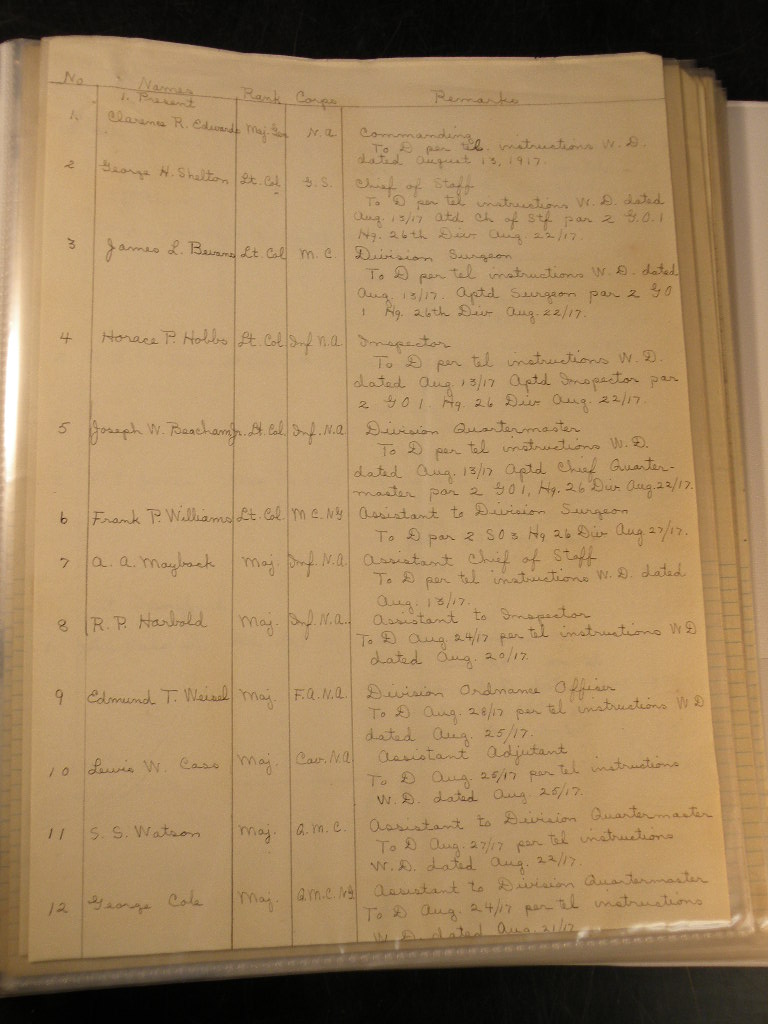 No Names Rank Corps Remarks
1. Present
1. Clarence R. Edwards Maj. Gen N.A. Commanding
To D per tel. instructions W.D.
dated August 13, 1917.
2 George H. Shelton Lt. Col G.S. Chief of Staff
To D per tel instructions W.D. dated
Aug. 13/17 Atd Ch of Stf par 2 G.O.1
Hq. 26th Div Aug. 22/17.
3 James L. Bevans Lt. Col M.C. Division Surgeon
To D per tel instructions W.D. dated
Aug. 13/17. Aptd Surgeon par 2 GO
1 Hq. 26th Div Aug. 22/17.
4 Horace P. Hobbs Lt. Col. Inf N.A. Inspector
To D per tel instructions W.D.
dated Aug. 13/17 Aptd Inspector par
2 GO1. Hq. 26 Div Aug. 22/17.
5 Joseph W. Beacham Jr. Lt. Col. Inf. N.A. Division Quartermaster
To D per tel instructions W.D.
dated Aug. 13/17 Aptd Chief Quarter-
master par 2 GO1, Hq. 26 Div Aug. 22/17.
6 Frank P. Williams Lt. Col M C. NG Assistant to Division Surgeon
To D par 2 SO 3 Hq 26 Div Aug. 27/17.
7 A. A. Mayback Maj. Inf. N.A Assistant Chief of Staff
To D per tel instructions W.D. dated
Aug. 13/17.
8 R. P. Harbold Maj. Inf. N.A. Assistant to Inspector
To D Aug. 24/17 per tel instructions W D
dated Aug. 20/17.
9 Edmund T. Weisel Maj. F.A. N.A. Division Ordnance Officer
To D Aug. 28/17 per tel instructions W D
dated Aug. 25/17.
10 Lewis W. Cass Maj. Cav. N.A Assistant Adjutant
To D Aug. 25/17 per tel instructions
W.D. dated Aug. 25/17.
11 S. S. Watson Maj. Q.M.C. Assistant to Division Quartermaster
To D Aug. 27/17 per tel instructions
W.D. dated Aug. 22/17.
12 George Cole Maj. Q M.C. NG Assistant to Division Quartermaster
To D Aug. 24/17 per tel instructions
W.D. dated Aug. 21/17